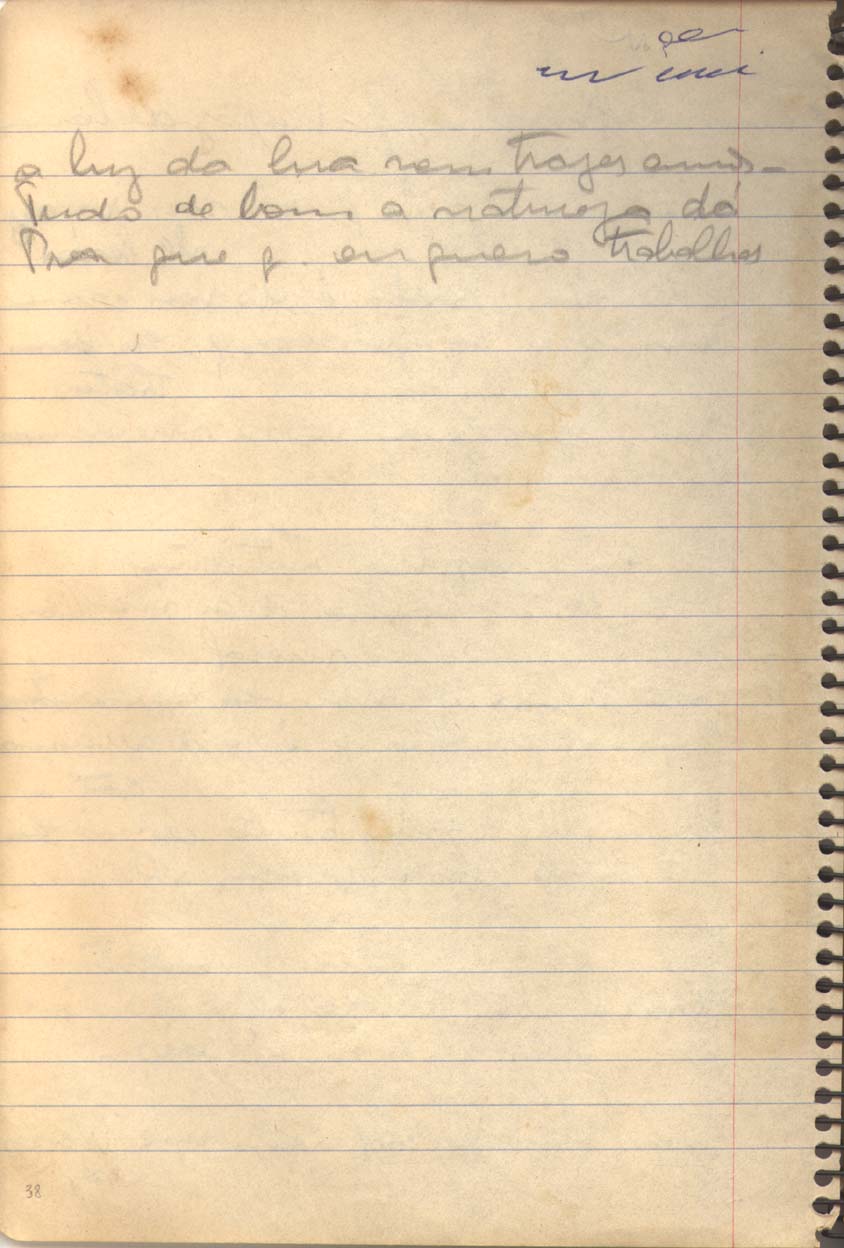 a luz da lua vem trazer amor
Tudo de bom a natureza dá
Pra que q. eu quero trabalhar
38